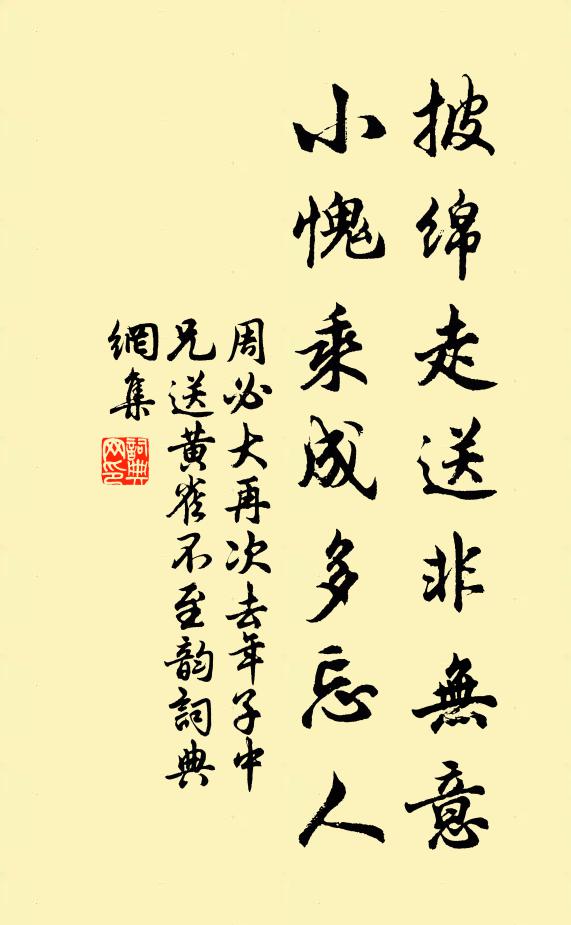 披绵走送非無意
小愧乘成多忘人
周必大再次去年子中
兄送黄雀不至韵詞典
網集
詞典網印